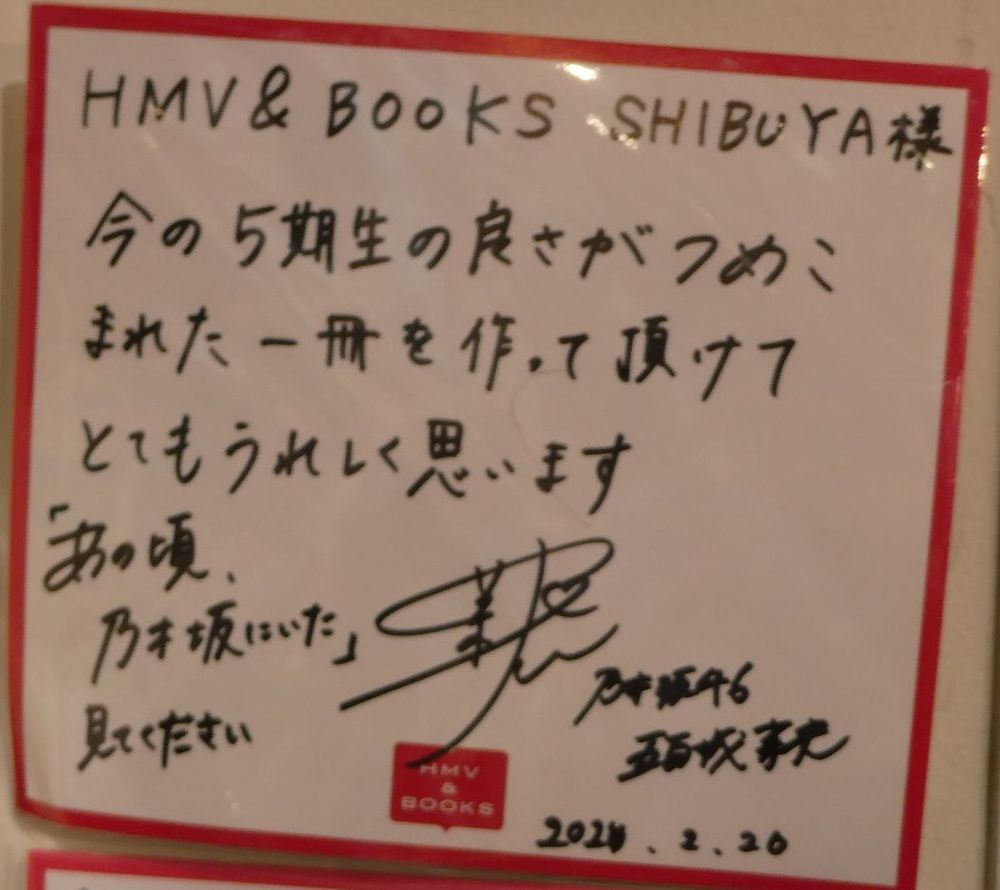 HMV & BOOKS SHIBUYA様
今の5期生の良さがつめこ
まれた一冊を作って頂けて
とてもうれしく思います
「あの頃、
乃木坂にいた」
見てください
乃木坂46
五百城茉央
HMV
&
BOOKS
2024.2.20